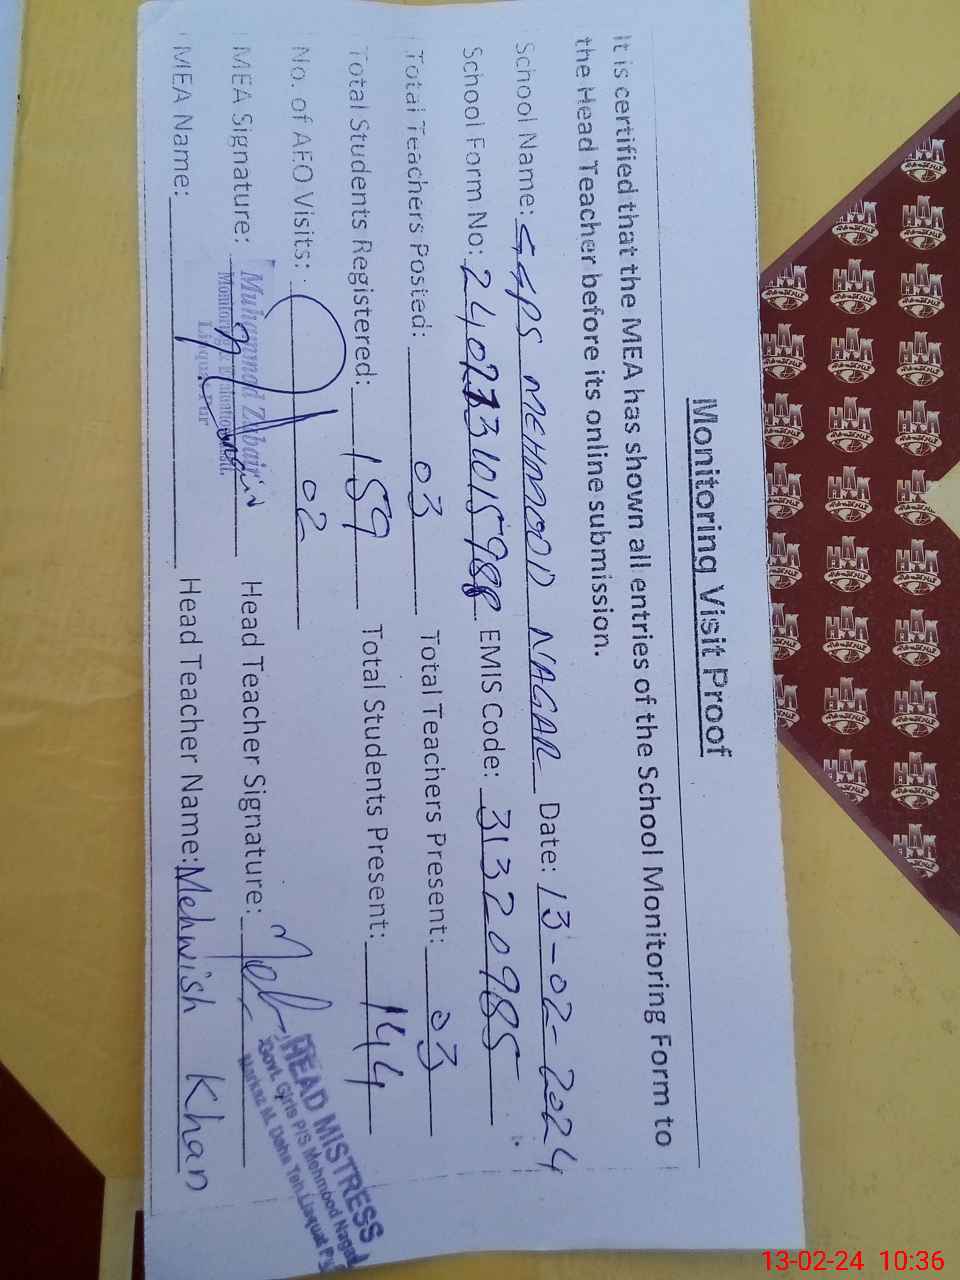 Monitoring Visit Proof
It is certified that the MEA has shown all entries of the School Monitoring Form to
the Head Teacher before its online submission.
School Name: GGPS MEHMOOD NAGAR Date: 13-02-2024
School Form No: EMIS Code: 31320985
Total Teachers Posted: 03 Total Teachers Present: 03
Total Students Registered: 159 Total Students Present: 144
No. of AEO Visits: 02
MEA Signature: Head Teacher Signature:
MEA Name: Head Teacher Name: Mehwish Khan
Muhammad Zubair
Liaquat Pur
HEAD MISTRESS
Govt. Girls P/S Mehmood Nagar
Markaz M. Daha Teh. Liaquat Pur
13-02-24 10:36